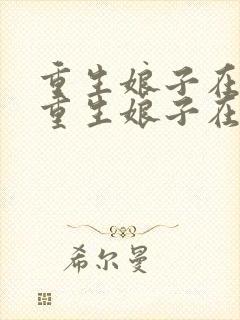 重生娘子在
重生娘子在
希尔曼